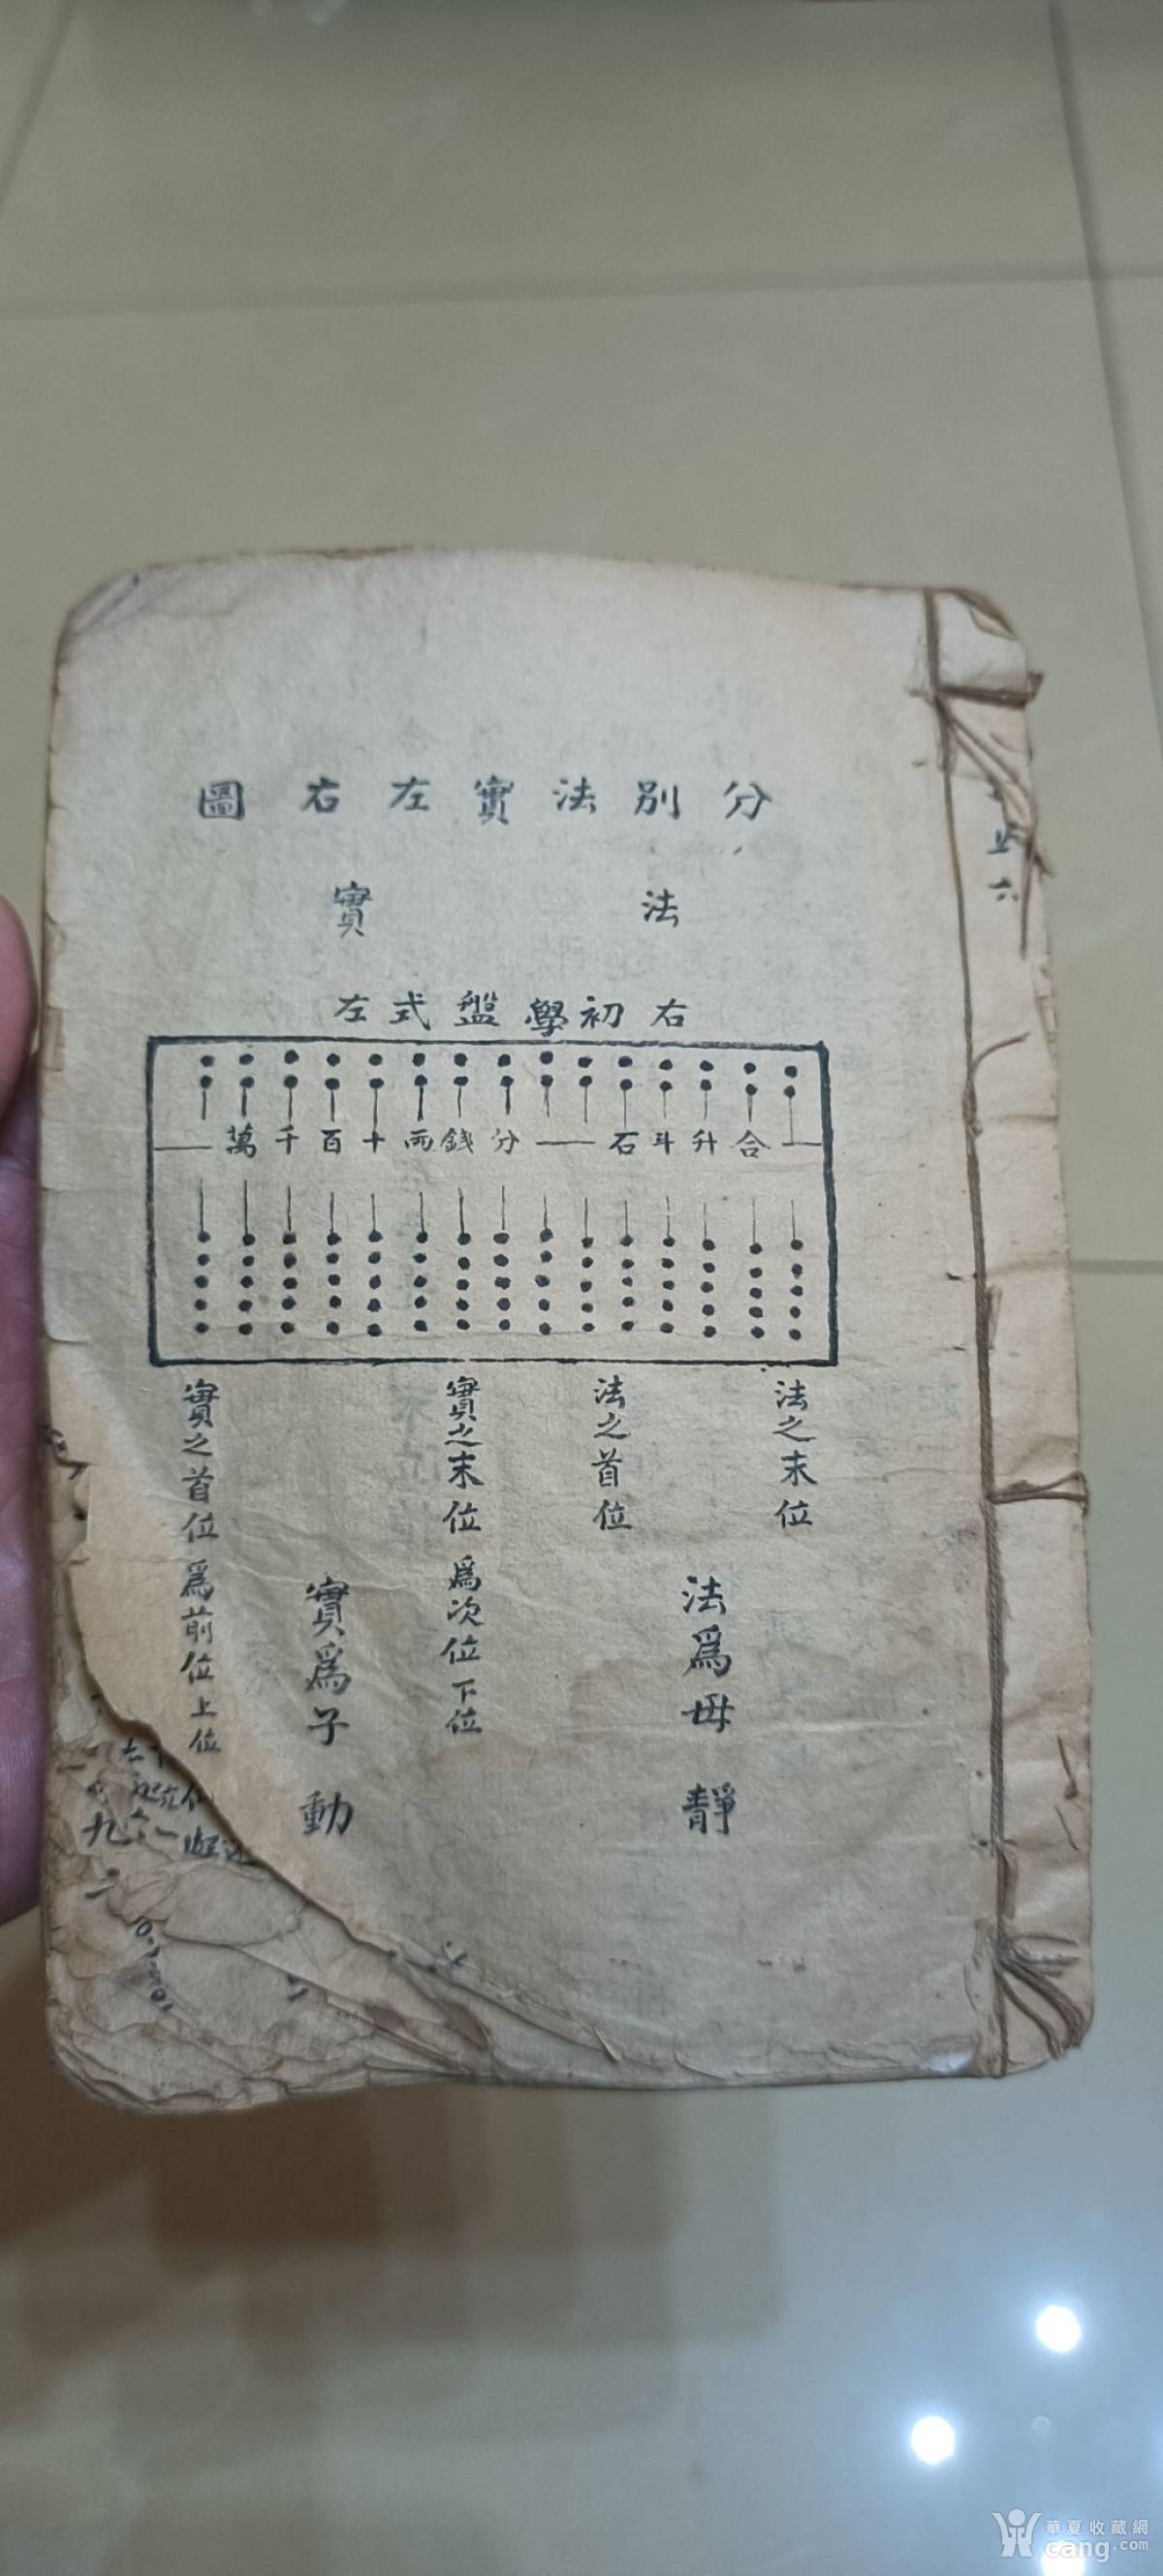 分別法實左右圖
法 實
右初學盤式左
合升斗石 分錢兩十百千萬
法之末位
法之首位
實之末位爲次位下位
實之首位爲前位上位
法爲毋靜
實爲子動
六
九
二
華夏收藏網
cang.com